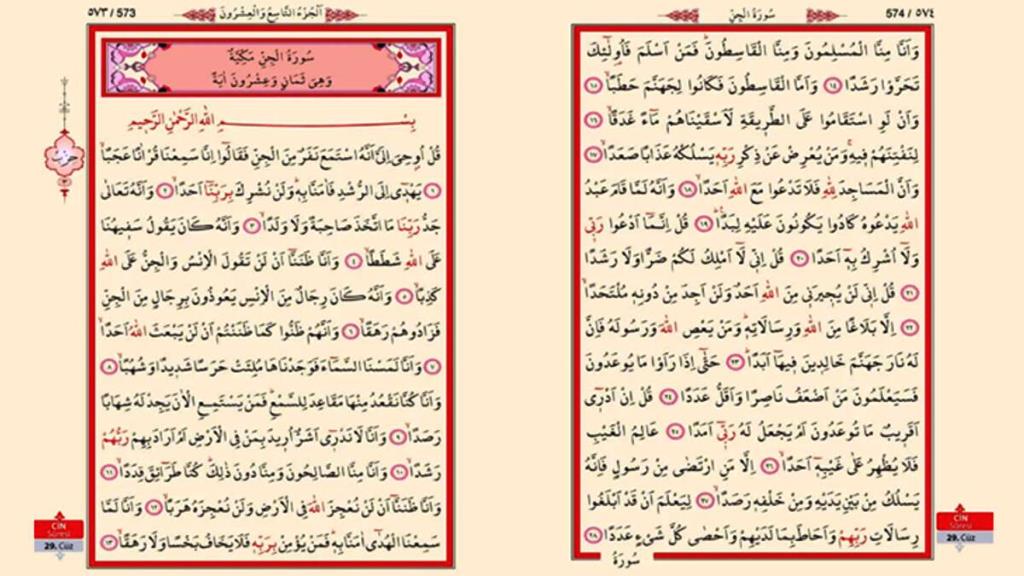 ٥٧٣ / 573
اَلْجُزْءُ التَّاسِعُ وَالْعِشْرُونَ
سُورَةُ الْجِنِّ مَكِّيَّةٌ
وَهِيَ ثَمَانٍ وَعِشْرُونَ اٰيَةً
بِسْـــــمِ اللهِ الرَّحْمٰنِ الرَّحِيمِ
قُلْ اُوحِيَ اِلَيَّ اَنَّهُ اسْتَمَعَ نَفَرٌ مِنَ الْجِنِّ فَقَالُٓوا اِنَّا سَمِعْنَا قُرْاٰنًا عَجَبًاۙ
﴿١﴾ يَهْدٖٓي اِلَى الرُّشْدِ فَاٰمَنَّا بِهٖۜ وَلَنْ نُشْرِكَ بِرَبِّنَٓا اَحَدًاۙ ﴿٢﴾ وَاَنَّهُ تَعَالٰى
جَدُّ رَبِّنَا مَا اتَّخَذَ صَاحِبَةً وَلَا وَلَدًاۙ ﴿٣﴾ وَاَنَّهُ كَانَ يَقُولُ سَفٖيهُنَا
عَلَى اللهِ شَطَطًاۙ ﴿٤﴾ وَاَنَّا ظَنَنَّٓا اَنْ لَنْ تَقُولَ الْاِنْسُ وَالْجِنُّ عَلَى اللهِ
كَذِبًاۙ ﴿٥﴾ وَاَنَّهُ كَانَ رِجَالٌ مِنَ الْاِنْسِ يَعُوذُونَ بِرِجَالٍ مِنَ الْجِنِّ
فَزَادُوهُمْ رَهَقًاۙ ﴿٦﴾ وَاَنَّهُمْ ظَنُّوا كَمَا ظَنَنْتُمْ اَنْ لَنْ يَبْعَثَ اللهُ اَحَدًاۙ
﴿٧﴾ وَاَنَّا لَمَسْنَا السَّمَٓاءَ فَوَجَدْنَاهَا مُلِئَتْ حَرَسًا شَدٖيدًا وَشُهُبًاۙ ﴿٨﴾
وَاَنَّا كُنَّا نَقْعُدُ مِنْهَا مَقَاعِدَ لِلسَّمْعِۜ فَمَنْ يَسْتَمِعِ الْاٰنَ يَجِدْ لَهُ شِهَابًا
رَصَدًاۙ ﴿٩﴾ وَاَنَّا لَا نَدْرٖٓي اَشَرٌّ اُرٖيدَ بِمَنْ فِي الْاَرْضِ اَمْ اَرَادَ بِهِمْ رَبُّهُمْ
رَشَدًاۙ ﴿١٠﴾ وَاَنَّا مِنَّا الصَّالِحُونَ وَمِنَّا دُونَ ذٰلِكَۜ كُنَّا طَرَٓائِقَ قِدَدًاۙ ﴿١١﴾
وَاَنَّا ظَنَنَّٓا اَنْ لَنْ نُعْجِزَ اللهَ فِي الْاَرْضِ وَلَنْ نُعْجِزَهُ هَرَبًاۙ ﴿١٢﴾ وَاَنَّا لَمَّا
سَمِعْنَا الْهُدٰٓى اٰمَنَّا بِهٖۜ فَمَنْ يُؤْمِنْ بِرَبِّهٖ فَلَا يَخَافُ بَخْسًا وَلَا رَهَقًاۙ ﴿١٣﴾
حزب
CİN
Sûresi
29. Cüz
574 / ٥٧٤
سُورَةُ الْجِنِّ
وَاَنَّا مِنَّا الْمُسْلِمُونَ وَمِنَّا الْقَاسِطُونَۜ فَمَنْ اَسْلَمَ فَاُو۬لٰٓئِكَ
تَحَرَّوْا رَشَدًا ﴿١٤﴾ وَاَمَّا الْقَاسِطُونَ فَكَانُوا لِجَهَنَّمَ حَطَبًاۙ ﴿١٥﴾
وَاَنْ لَوِ اسْتَقَامُوا عَلَى الطَّرٖيقَةِ لَاَسْقَيْنَاهُمْ مَٓاءً غَدَقًاۙ ﴿١٦﴾
لِنَفْتِنَهُمْ فٖيهِۜ وَمَنْ يُعْرِضْ عَنْ ذِكْرِ رَبِّهٖ يَسْلُكْهُ عَذَابًا صَعَدًاۙ ﴿١٧﴾
وَاَنَّ الْمَسَاجِدَ لِلّٰهِ فَلَا تَدْعُوا مَعَ اللهِ اَحَدًاۙ ﴿١٨﴾ وَاَنَّهُ لَمَّا قَامَ عَبْدُ
اللهِ يَدْعُوهُ كَادُوا يَكُونُونَ عَلَيْهِ لِبَدًاۜ ﴿١٩﴾ قُلْ اِنَّمَٓا اَدْعُوا رَبّٖي
وَلَٓا اُشْرِكُ بِهٖٓ اَحَدًا ﴿٢٠﴾ قُلْ اِنّٖي لَٓا اَمْلِكُ لَكُمْ ضَرًّا وَلَا رَشَدًا
﴿٢١﴾ قُلْ اِنّٖي لَنْ يُجٖيرَنٖي مِنَ اللهِ اَحَدٌ وَلَنْ اَجِدَ مِنْ دُونِهٖ مُلْتَحَدًاۙ
﴿٢٢﴾ اِلَّا بَلَاغًا مِنَ اللهِ وَرِسَالَاتِهٖۜ وَمَنْ يَعْصِ اللهَ وَرَسُولَهُ فَاِنَّ
لَهُ نَارَ جَهَنَّمَ خَالِدٖينَ فٖيهَٓا اَبَدًاۜ ﴿٢٣﴾ حَتّٰٓى اِذَا رَاَوْا مَا يُوعَدُونَ
فَسَيَعْلَمُونَ مَنْ اَضْعَفُ نَاصِرًا وَاَقَلُّ عَدَدًا ﴿٢٤﴾ قُلْ اِنْ اَدْرٖٓي
اَقَرٖيبٌ مَا تُوعَدُونَ اَمْ يَجْعَلُ لَهُ رَبّٖٓي اَمَدًا ﴿٢٥﴾ عَالِمُ الْغَيْبِ
فَلَا يُظْهِرُ عَلٰى غَيْبِهٖٓ اَحَدًاۙ ﴿٢٦﴾ اِلَّا مَنِ ارْتَضٰى مِنْ رَسُولٍ فَاِنَّهُ
يَسْلُكُ مِنْ بَيْنِ يَدَيْهِ وَمِنْ خَلْفِهٖ رَصَدًاۙ ﴿٢٧﴾ لِيَعْلَمَ اَنْ قَدْ اَبْلَغُوا
رِسَالَاتِ رَبِّهِمْ وَاَحَاطَ بِمَا لَدَيْهِمْ وَاَحْصٰى كُلَّ شَيْءٍ عَدَدًا ﴿٢٨﴾
سُورَةُ
CİN
Sûresi
29. Cüz